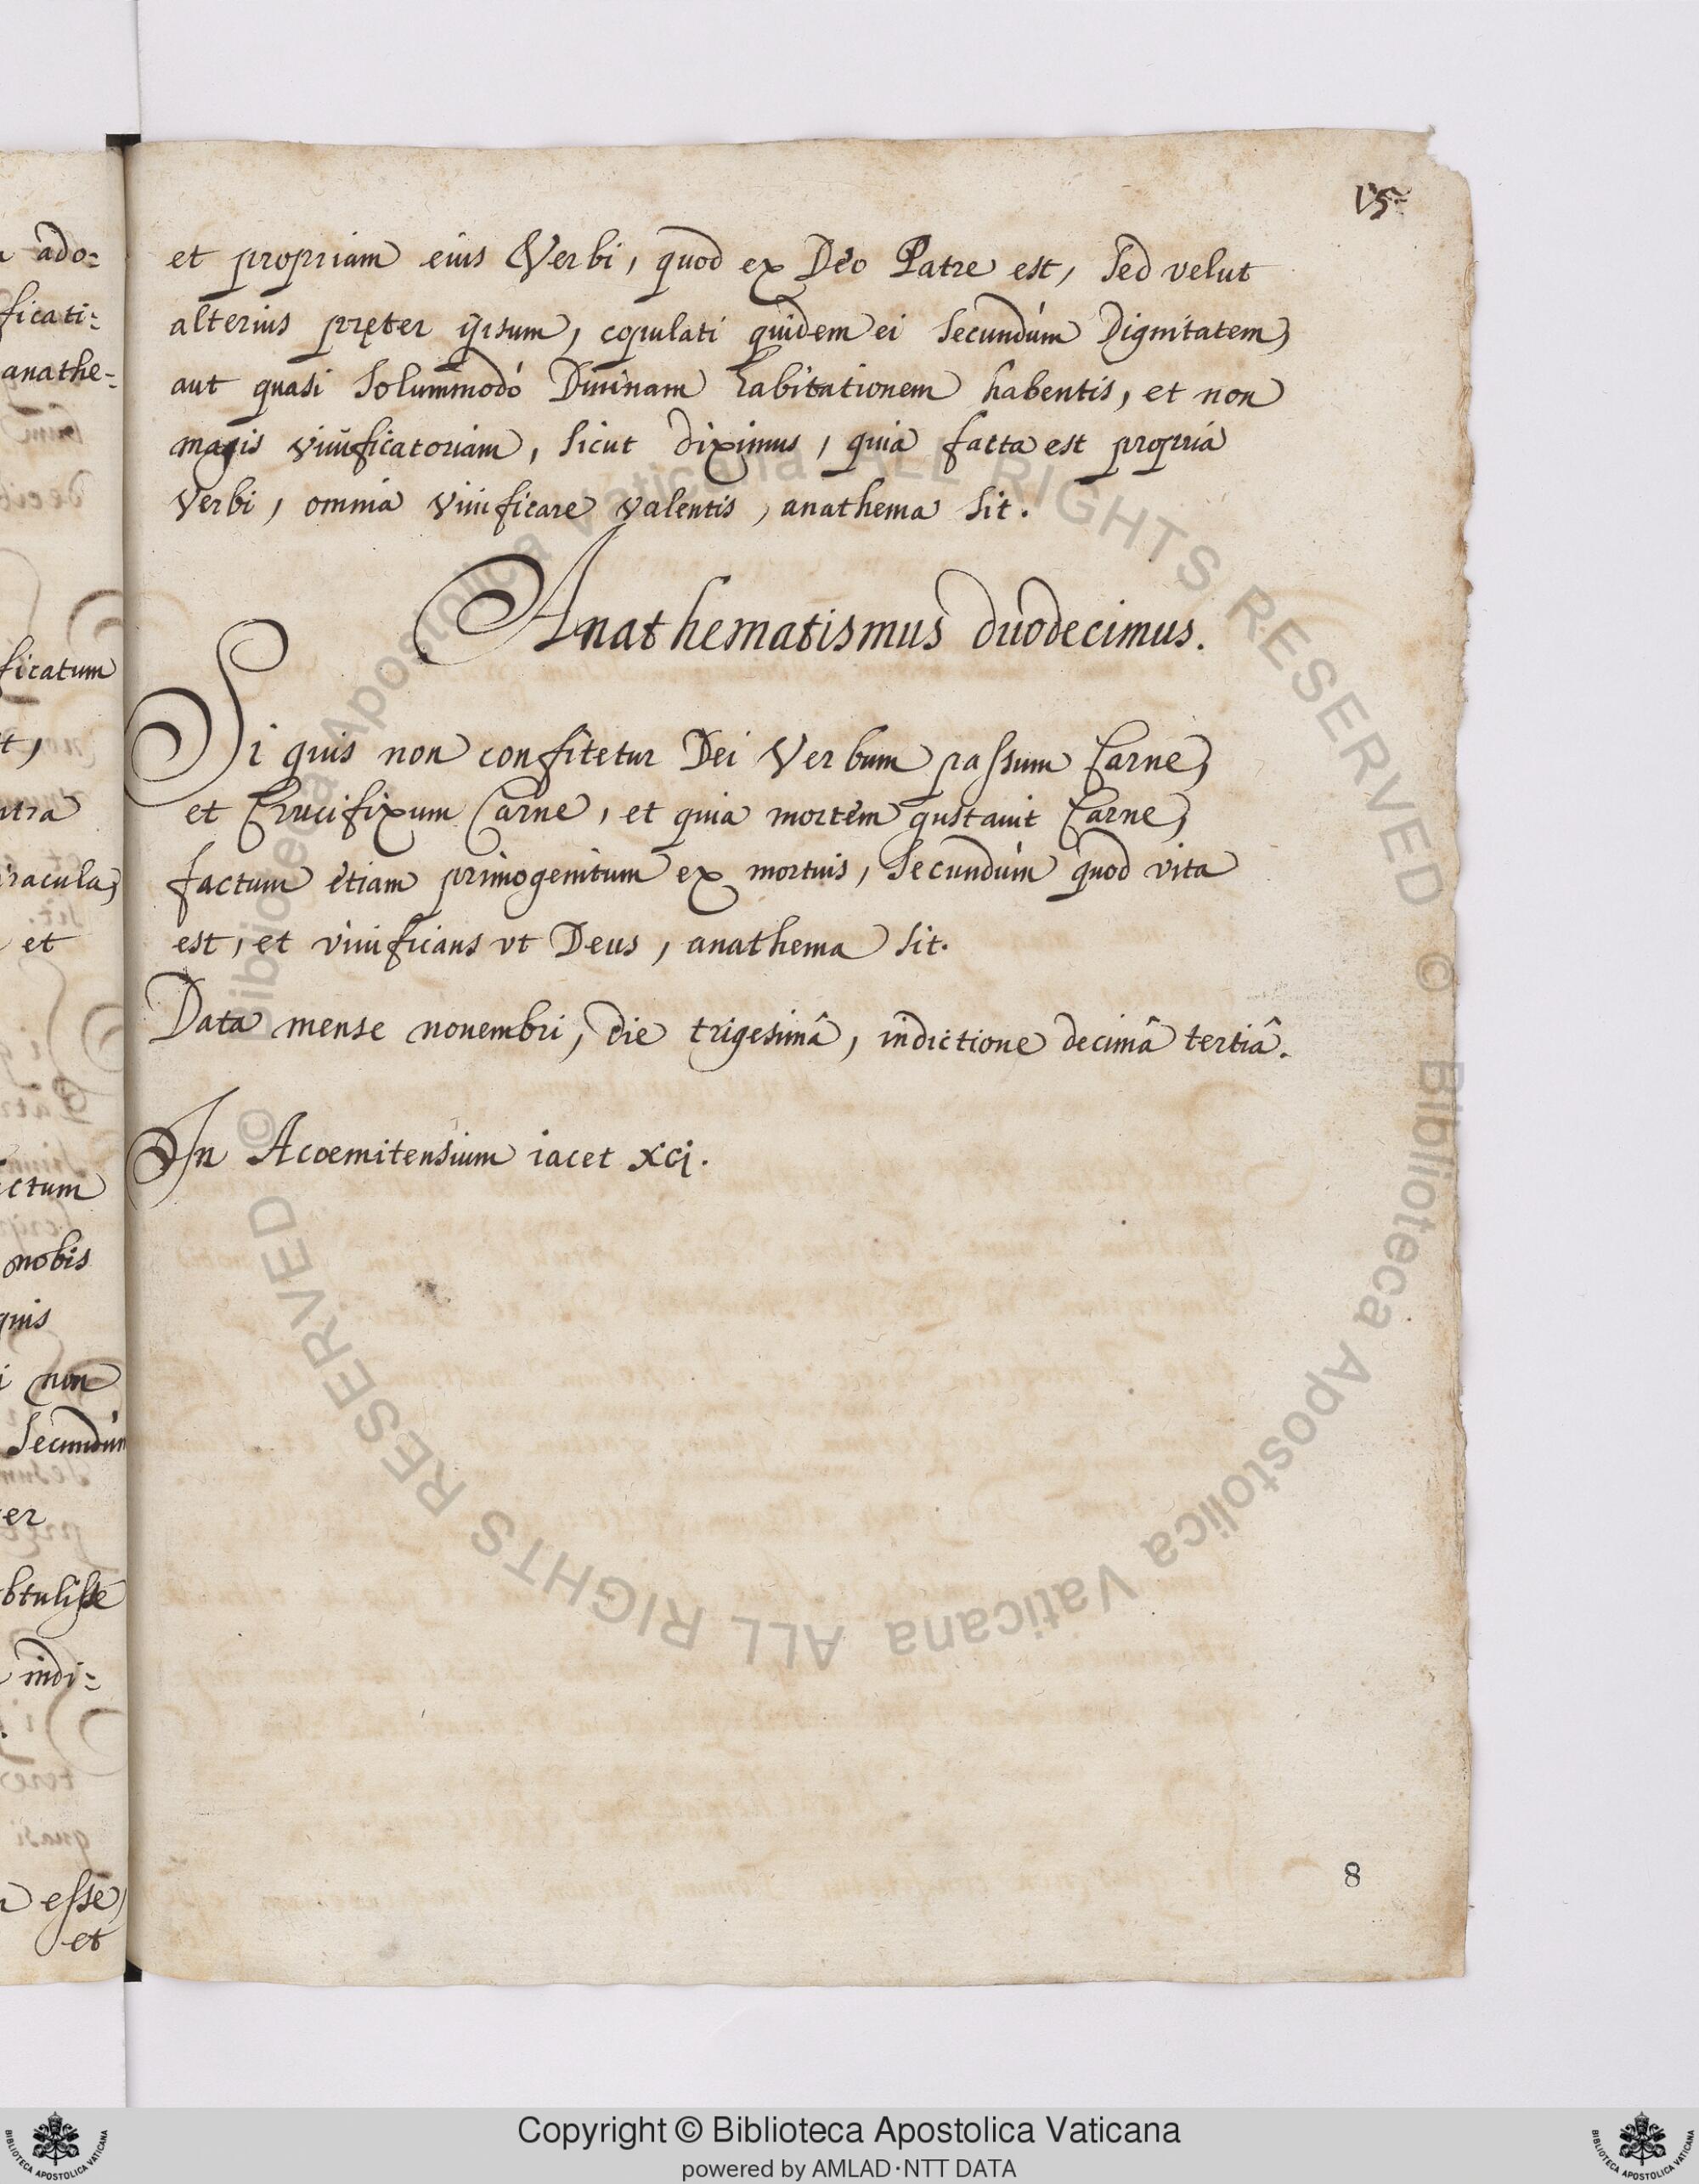 15
et propriam eius Verbi, quod ex Deo Patre est, sed velut
alterius pręter ipsum, copulati quidem ei secundùm Dignitatem,
aut quasi solummodò Diuinam habitationem habentis, et non
magis viuificatoriam, sicut diximus, quia facta est propria
Verbi, omnia viuificare valentis, anathema sit.
Anathematismus duodecimus.
Si quis non confitetur Dei Verbum passum Carne,
et Crucifixum Carne, et quia mortem gustauit Carne,
factum etiam primogenitum ex mortuis, secundùm quod vita
est, et viuificans vt Deus, anathema sit.
Data mense nouembri, die trigesimâ, indictione decimâ tertiâ.
In Acoemitensium iacet xcj.
8
ado=
ficati=
anathe=
ficatum
ntra
iracula,
et
ctum
nobis
quis
non
secundùm
er
btulisse
indi=
esse,
et
© Biblioteca Apostolica Vaticana ALL RIGHTS RESERVED
© Biblioteca Apostolica Vaticana ALL RIGHTS RESERVED
Copyright © Biblioteca Apostolica Vaticana
powered by AMLAD·NTT DATA
BIBLIOTECA APOSTOLICA VATICANA
BIBLIOTECA APOSTOLICA VATICANA